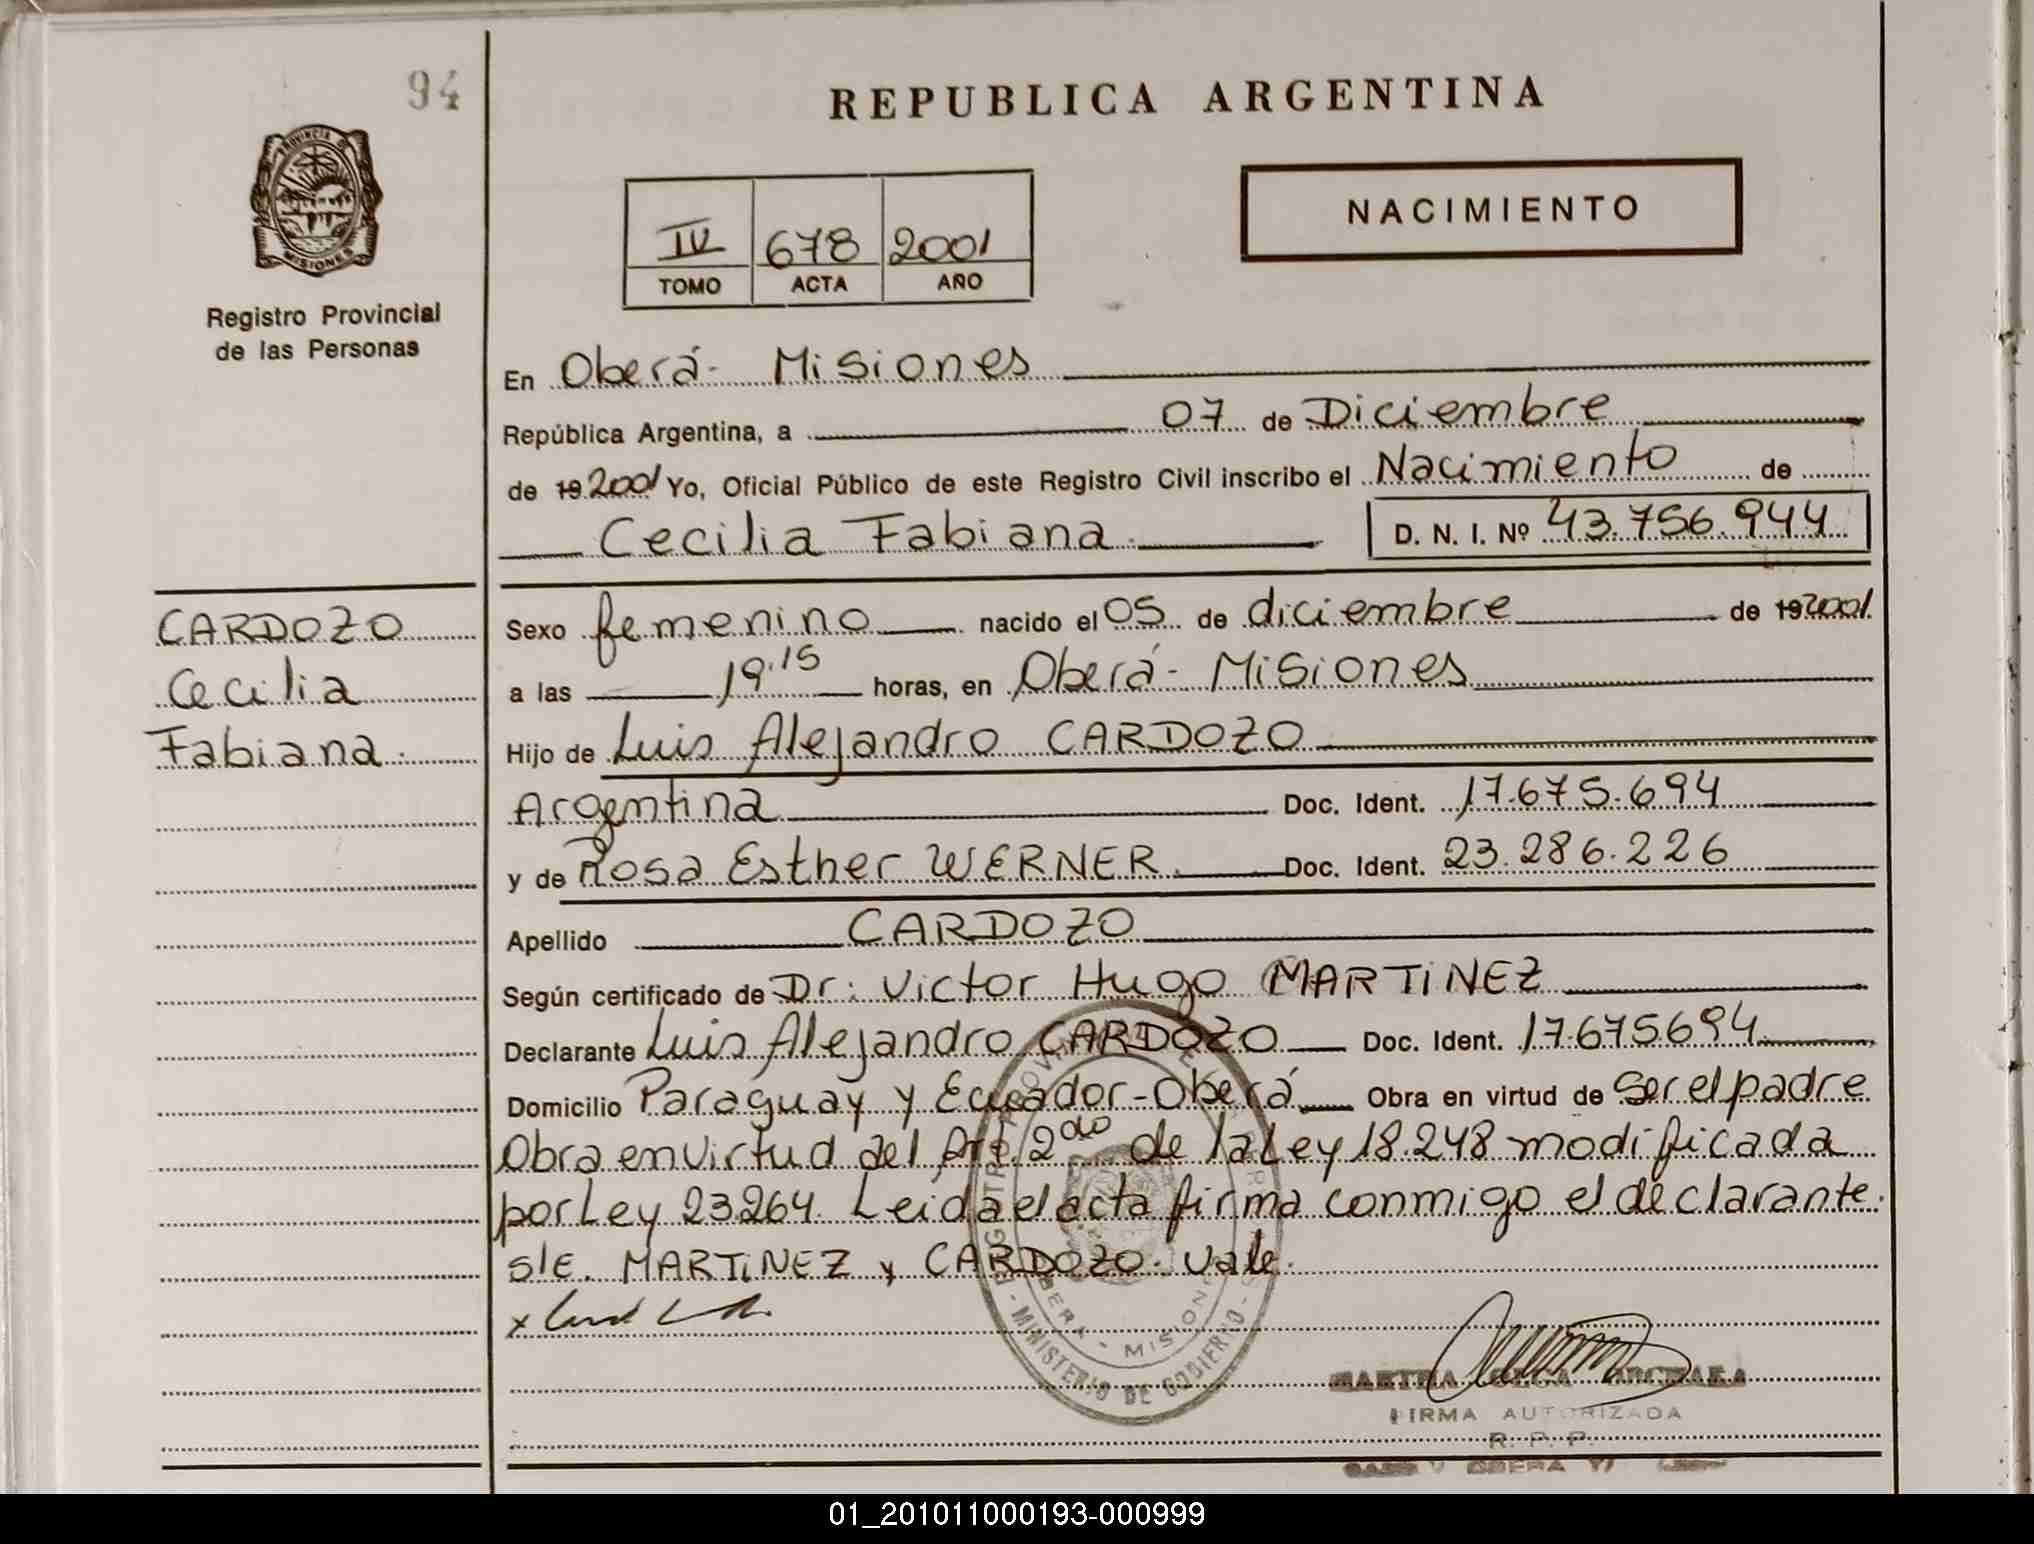 94
REPUBLICA ARGENTINA
PROVINCIA DE
MISIONES
Registro Provincial
de las Personas
IV 678 2001
TOMO ACTA AÑO
NACIMIENTO
En Oberá - Misiones
República Argentina, a 07 de Diciembre
de 19 2001 Yo, Oficial Público de este Registro Civil inscribo el Nacimiento de
Cecilia Fabiana.
D. N. I. Nº 43.756.944
CARDOZO
Cecilia
Fabiana.
Sexo femenino nacido el 05 de diciembre de 19 2001.
a las 19.15 horas, en Oberá - Misiones
Hijo de Luis Alejandro CARDOZO
Argentina Doc. Ident. 17.675.694
y de Rosa Esther WERNER. Doc. Ident. 23.286.226
Apellido CARDOZO
Según certificado de Dr: Victor Hugo MARTINEZ
Declarante Luis Alejandro CARDOZO Doc. Ident. 17.675694
Domicilio Paraguay y Ecuador - Oberá Obra en virtud de Ser el padre
Obra en virtud del Art. 2do de la Ley 18.248 modificada
por Ley 23264. Leida el acta firma conmigo el declarante.
S/E. MARTINEZ y CARDOZO. Vale.
MINISTERIO DE GOBIERNO
MISIONES
MARTHA OLGA
FIRMA AUTORIZADA
R. P. P.
01_201011000193-000999